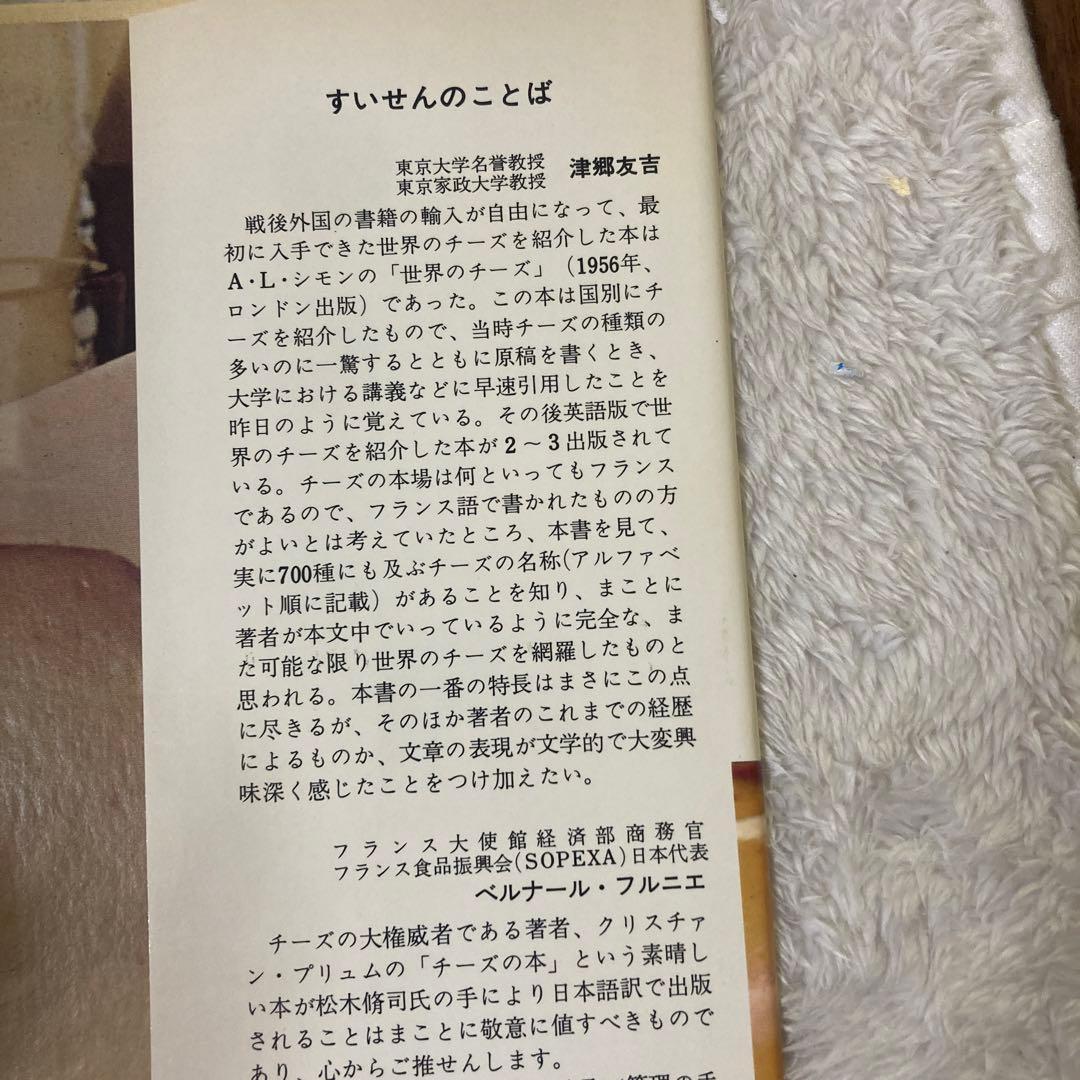 すいせんのことば
東京大学名誉教授
東京家政大学教授
津郷友吉
戦後外国の書籍の輸入が自由になって、最
初に入手できた世界のチーズを紹介した本は
A・L・シモンの「世界のチーズ」(1956年、
ロンドン出版)であった。この本は国別にチ
ーズを紹介したもので、当時チーズの種類の
多いのに一驚するとともに原稿を書くとき、
大学における講義などに早速引用したことを
昨日のように覚えている。その後英語版で世
界のチーズを紹介した本が2〜3出版されて
いる。チーズの本場は何といってもフランス
であるので、フランス語で書かれたものの方
がよいとは考えていたところ、本書を見て、
実に700種にも及ぶチーズの名称(アルファベ
ット順に記載)があることを知り、まことに
著者が本文中でいっているように完全な、ま
た可能な限り世界のチーズを網羅したものと
思われる。本書の一番の特長はまさにこの点
に尽きるが、そのほか著者のこれまでの経歴
によるものか、文章の表現が文学的で大変興
味深く感じたことをつけ加えたい。
フランス大使館経済部商務官
フランス食品振興会(SOPEXA)日本代表
ベルナール・フルニエ
チーズの大権威者である著者、クリスチァ
ン・プリュムの「チーズの本」という素晴し
い本が松木脩司氏の手により日本語訳で出版
されることはまことに敬意に値すべきもので
あり、心からご推せんします。